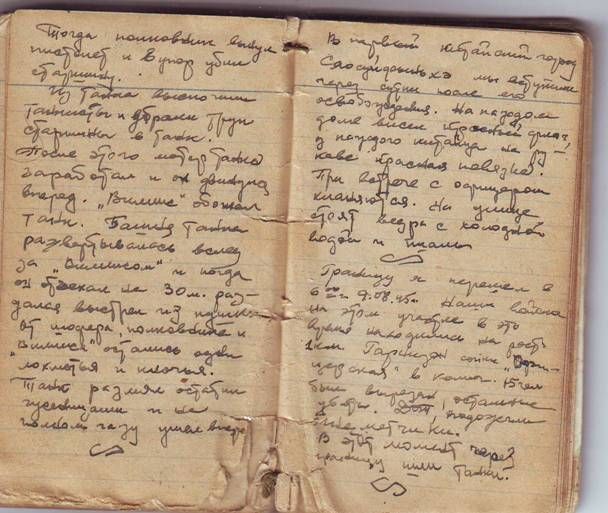 Тогда полковник вынул
пистолет и в упор убил
старшину.
Из танка выскочили
танкисты и убрали труп
старшины в танк.
После этого мотор танка
заработал и он двинулся
вперед. „Виллис" обогнал
танк. Башня танка
развертывалась вслед
за „Виллисом" и когда
он отъехал на 30 м. раз-
дался выстрел из пушки.
От шофера, полковника и
„Виллиса" остались одни
лохмотья и клочья.
Танк размял остатки
гусеницами и на
полном газу ушел вперед
В первый китайский город
мы вступили
через сутки после его
освобождения. На каждом
доме висел красный флаг,
у каждого китайца на ру-
каве красная повязка.
При встрече с офицером
кланяются. На улице
стоят ведра с холодной
водой и
Границу я перешел в
9.08.45г. Наши войска
на этом участке в это
время находились на расст.
1 км. Гарнизон сопки
был вырезан, остальные
ДОТ подожгли
огнеметчики.
В этот момент через
границу шли танки.